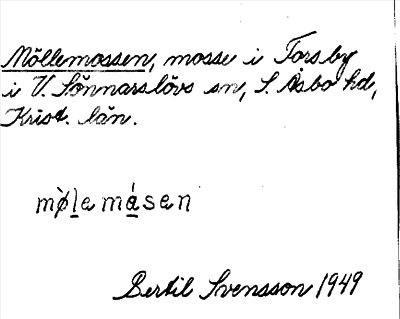 Möllemossen, mosse i Torsby
i V. Sönnarslövs sn, S. Åsbo hd,
Krist. län.
mø̀le måsen
Bertil Svensson 1949